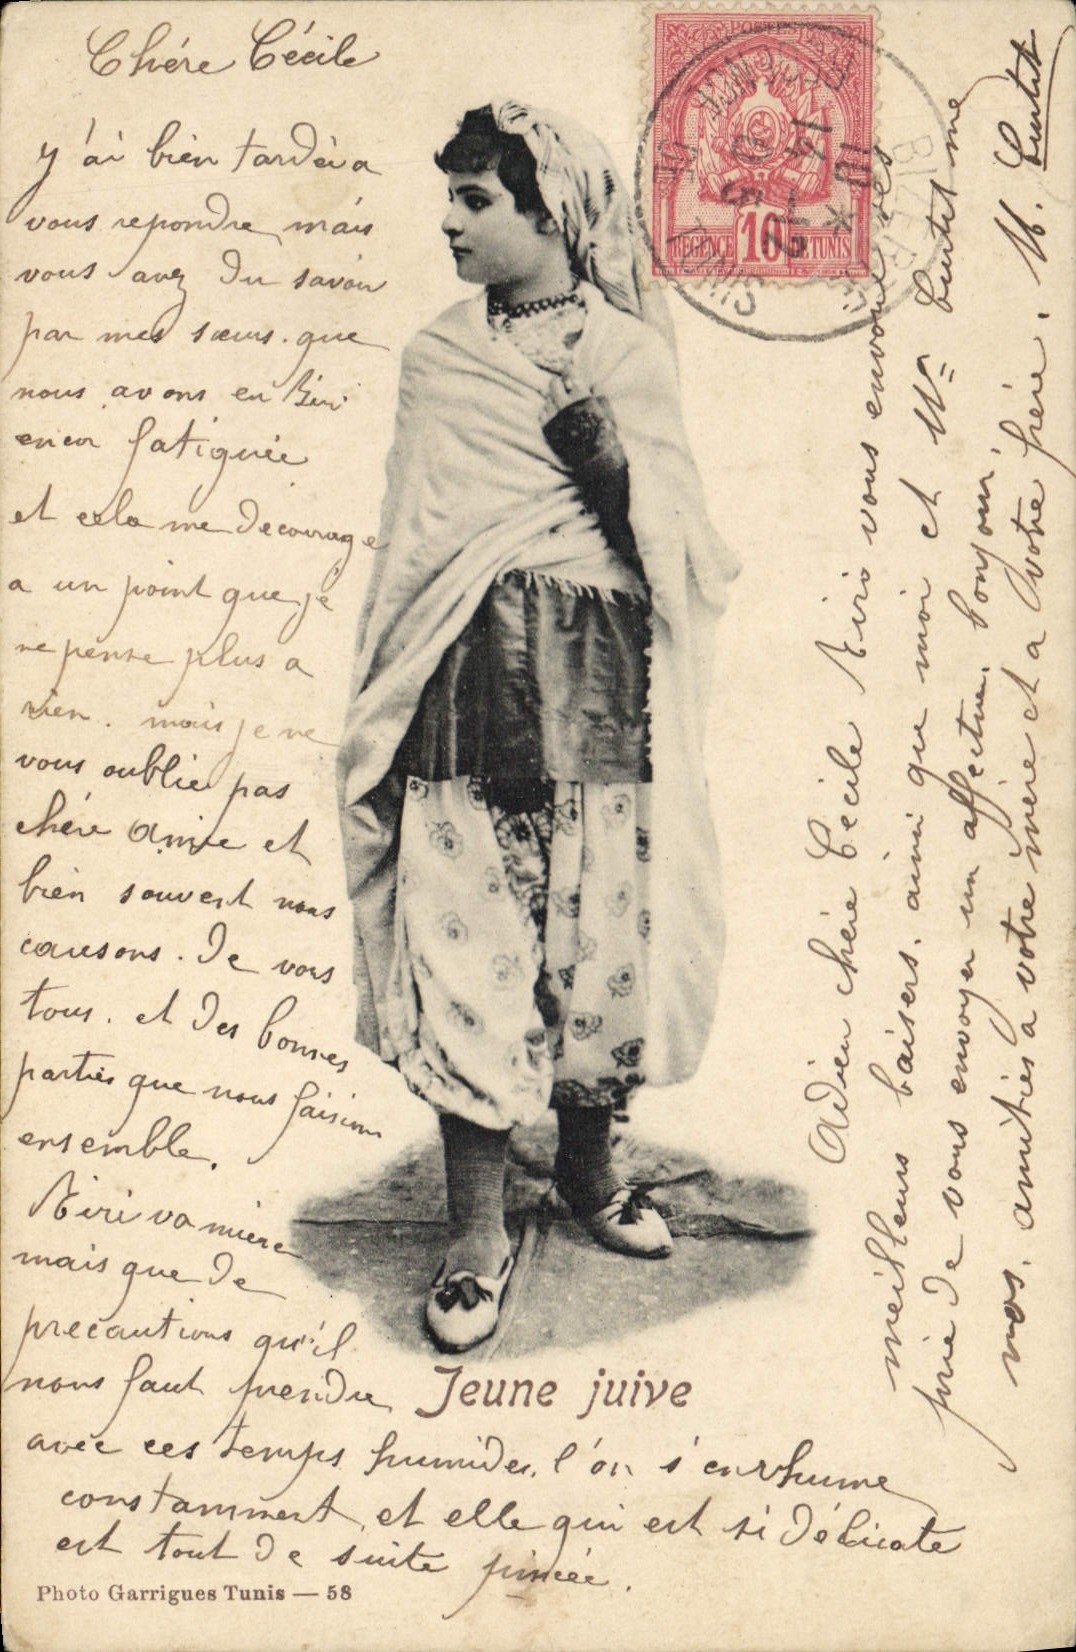 Chére Cécile
y'ai bien tardéia
vous repondre mais
vous avez du savoir
par mes sœurs. que
nous avons eu Riri
encor fatiguée
et cela me decourage
a un point que je
ne pense plus a
rien. mais je ne
vous oublie pas
chére amie et
bien souvent nous
causons. De vous
tous. et des bonnes
parties que nous faisions
ensemble.
Riri va miere
mais que de
precautions qu'il
nous faut prendre
avec ces temps humides. l'on s'enrhume
constamment, et elle qui est si délicate
est tout de suite pincée.
Adieu chére Cécile Riri vous envoie ses
meilleurs baisers. ainsi que moi et Mr Curtit me
prie de vous envoyer un affectueu. bonjour.
nos. amitiés a votre mère et a votre frére. M. Curtit
POSTES
REGENCE 10 DE TUNIS
TUNIS
Jeune juive
Photo Garrigues Tunis — 58